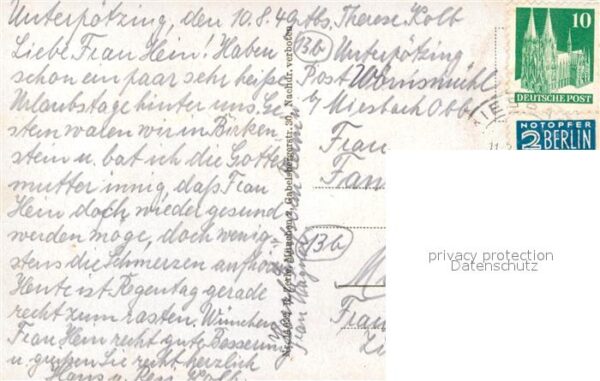 Unterpötzing, den 10.8.49
Liebe Frau Hein! Haben
schon ein paar sehr heiße
Urlaubstage hinter uns. Ge
stern waren wir in Birken
stein u. bat ich die Gottes
mutter innig, daß Frau
Hein doch wieder gesund
werden möge, doch wenig
stens die Schmerzen aufhören
Heute ist Regentag gerade
recht zum rasten. Wünschen
Frau Hein recht gute Besserung
u. grüßen Sie recht herzlich
Hans u. Resi Kolb.
Frau Wagner
München 2, Gabelsbergerstr. 30, Nachdr. verboten
Abs. Therese Kolb
13b Unterpötzing
Post Wörnsmühl
b/ Miesbach Obb.
Frau
13b
Frau
10
DEUTSCHE POST
NOTOPFER
2 BERLIN
privacy protection
Datenschutz